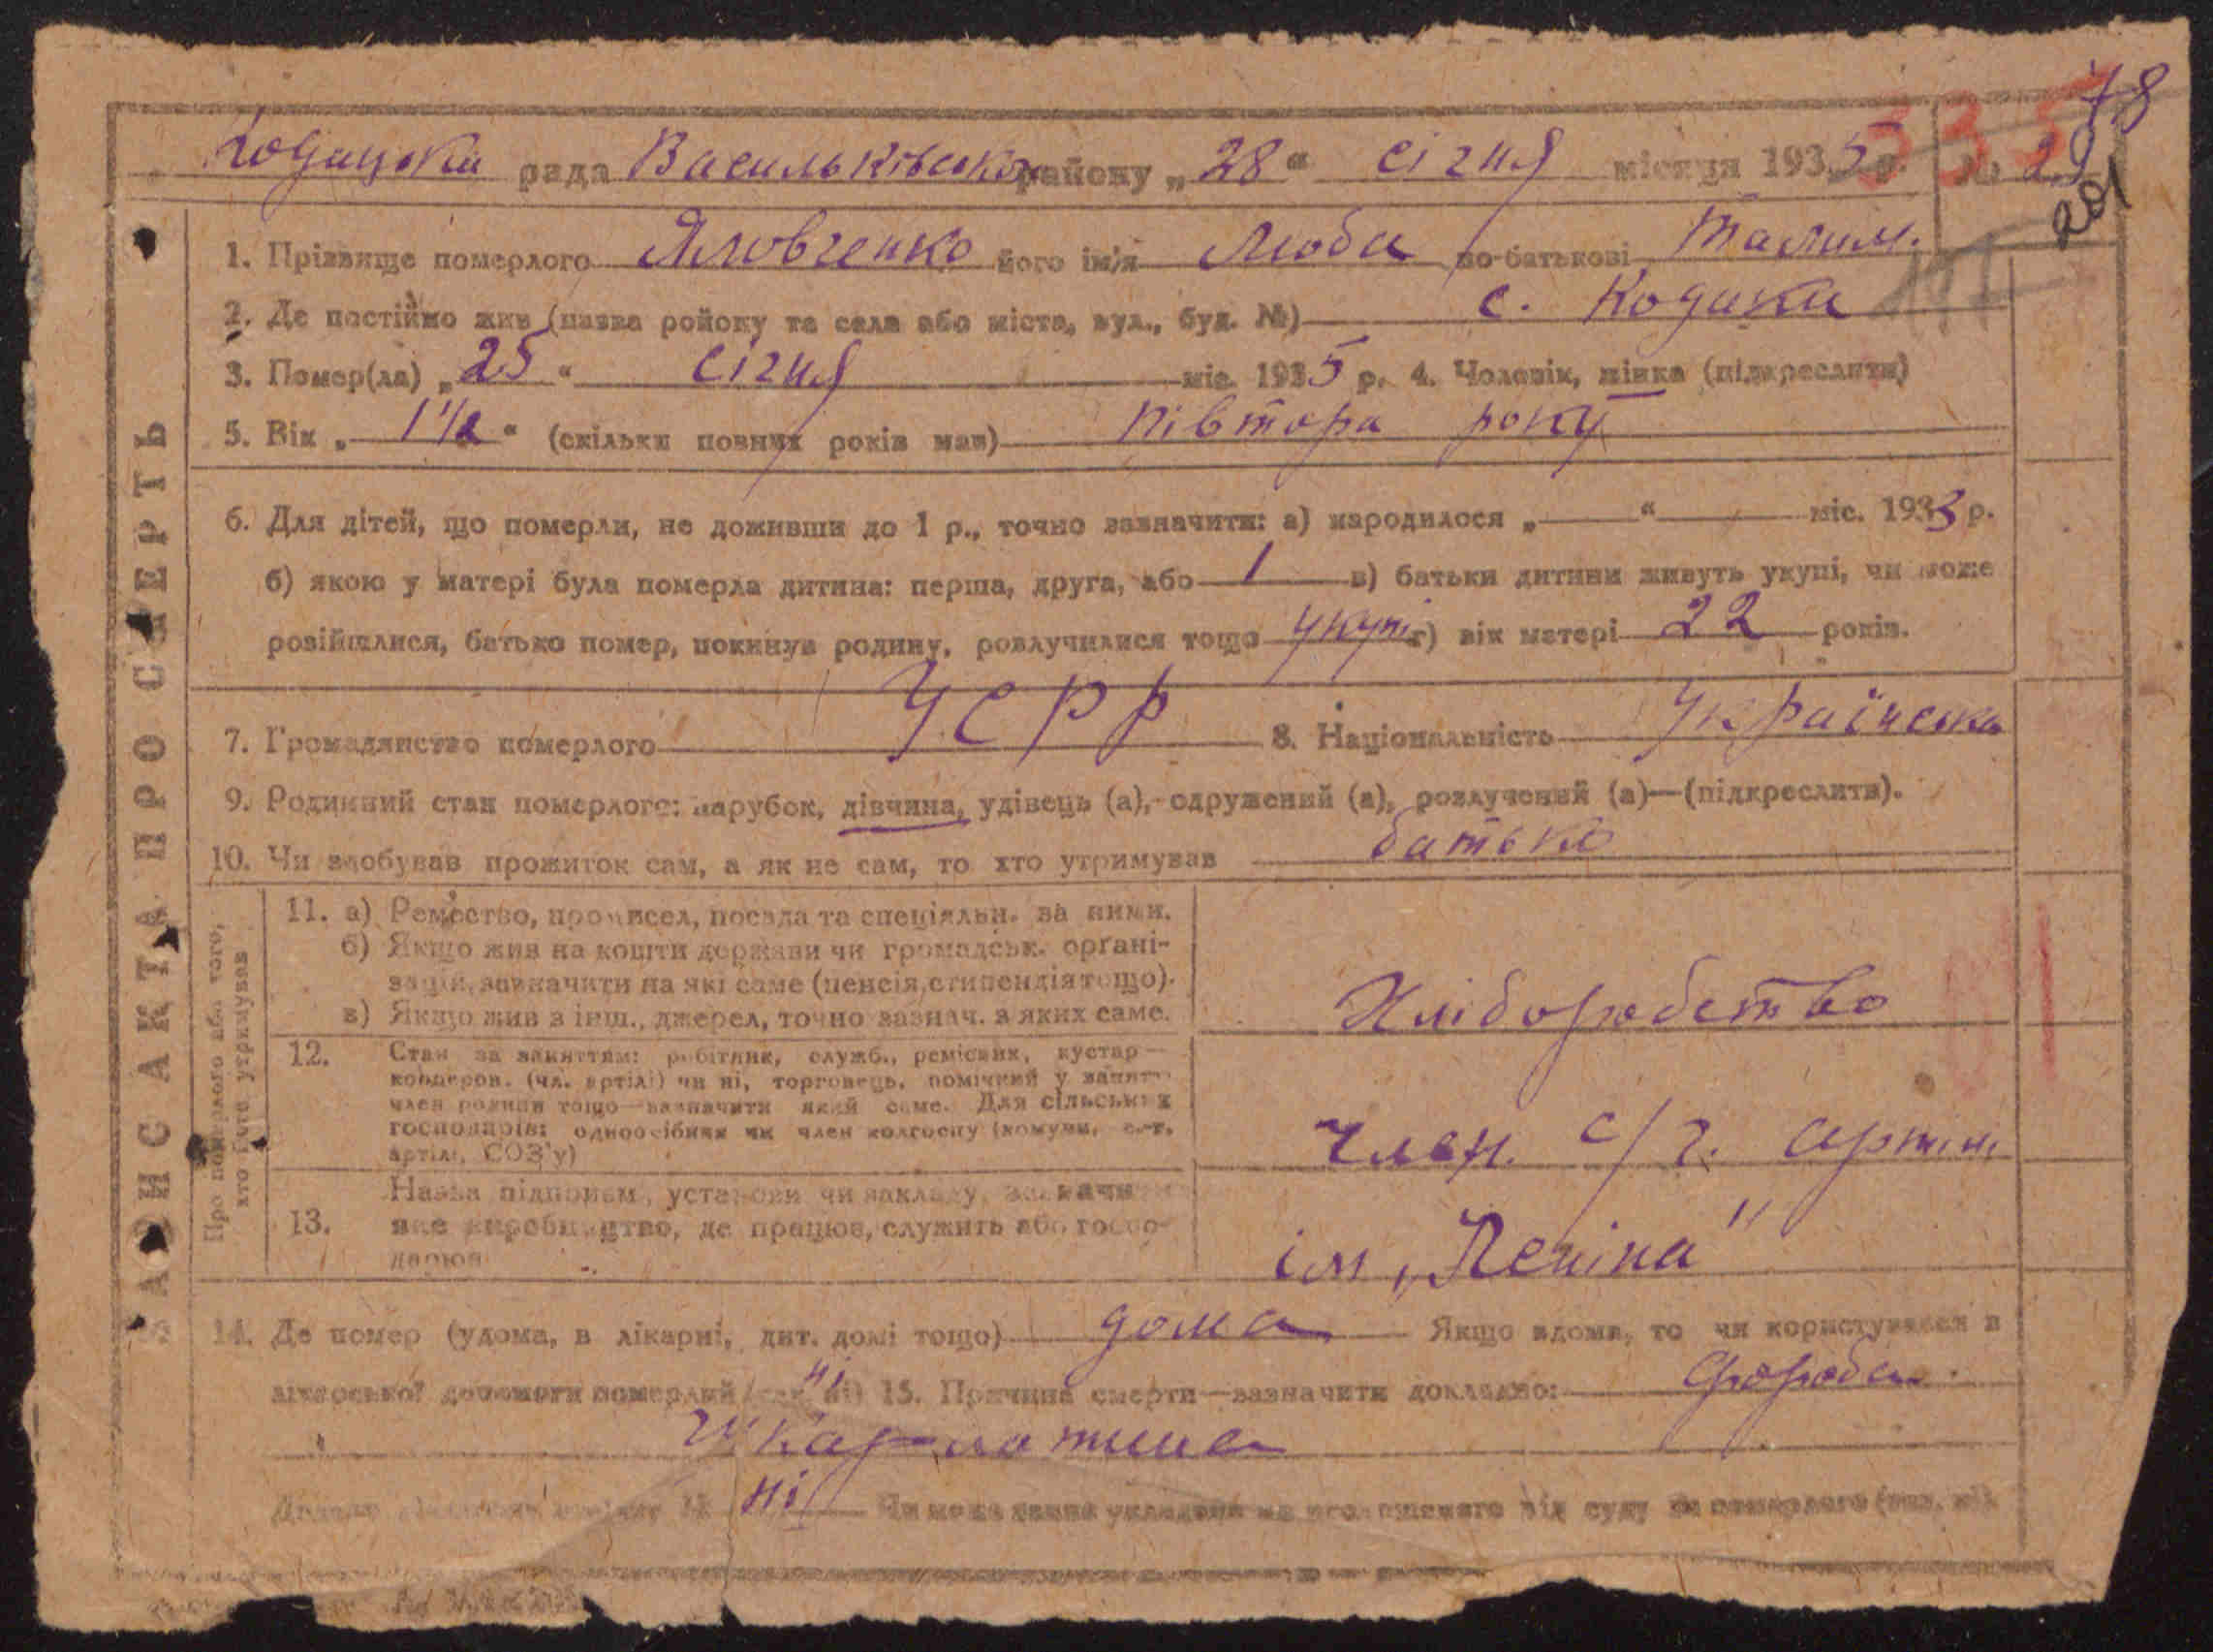 78
335
Кодацька рада Васильківськ району „28“ січня місяця 1935 р. № 29
201
1. Прізвище померлого Яловченко його ім'я Люба по-батькові
2. Де постійно жив (назва ройону та села або міста, вул., буд. №) с. Кодаки
3. Помер(ла) „25“ січня міс. 1935 р. 4. Чоловік, жінка (підкреслити)
5. Вік „1 1/2“ (скільки повних років мав) півтора року
6. Для дітей, що померли, не доживши до 1 р., точно зазначити: а) народилося „—“ — міс. 1933 р.
б) якою у матері була померла дитина: перша, друга, або 1 в) батьки дитини живуть укупі, чи може
розійшлися, батько помер, покинув родину, розлучилися тощо укупі г) вік матері 22 років.
7. Громадянство померлого УСРР 8. Національність Українська
9. Родинний стан померлого: парубок, дівчина, удівець (а), одружений (а), розлучений (а)—(підкреслити).
10. Чи здобував прожиток сам, а як не сам, то хто утримував батько
ЗАПИС АКТА ПРО СМЕРТЬ
Про померлого або того,
хто його утримував
11. а) Ремество, промисел, посада та спеціяльн. за ними.
б) Якщо жив на кошти держави чи громадськ. органі-
зацій, зазначити на які саме (пенсія, стипендія тощо).
в) Якщо жив з інш., джерел, точно зазнач. з яких саме.
Хліборобство
12. Стан за заняттям: робітник, служб., ремісник, кустар—
кооперов. (чл. артілі) чи ні, торговець, помічний у занятт
член родини тощо—зазначити який саме. Для сільських
господарів: одноосібник чи член колгоспу (комуни, с.-г.
артілі, СОЗ'у)
член. с/г. артіли
13. Назва підприєм., установи чи закладу, зазначити
яке виробництво, де працює, служить або госпо-
дарює
ім „Леніна"
14. Де помер (удома, в лікарні, дит. домі тощо) дома Якщо вдома, то чи користувався в
лікарської допомоги померлий ні 15. Причина смерти—зазначити докладно: хороба
шкарлатина
ні Чи може від суду